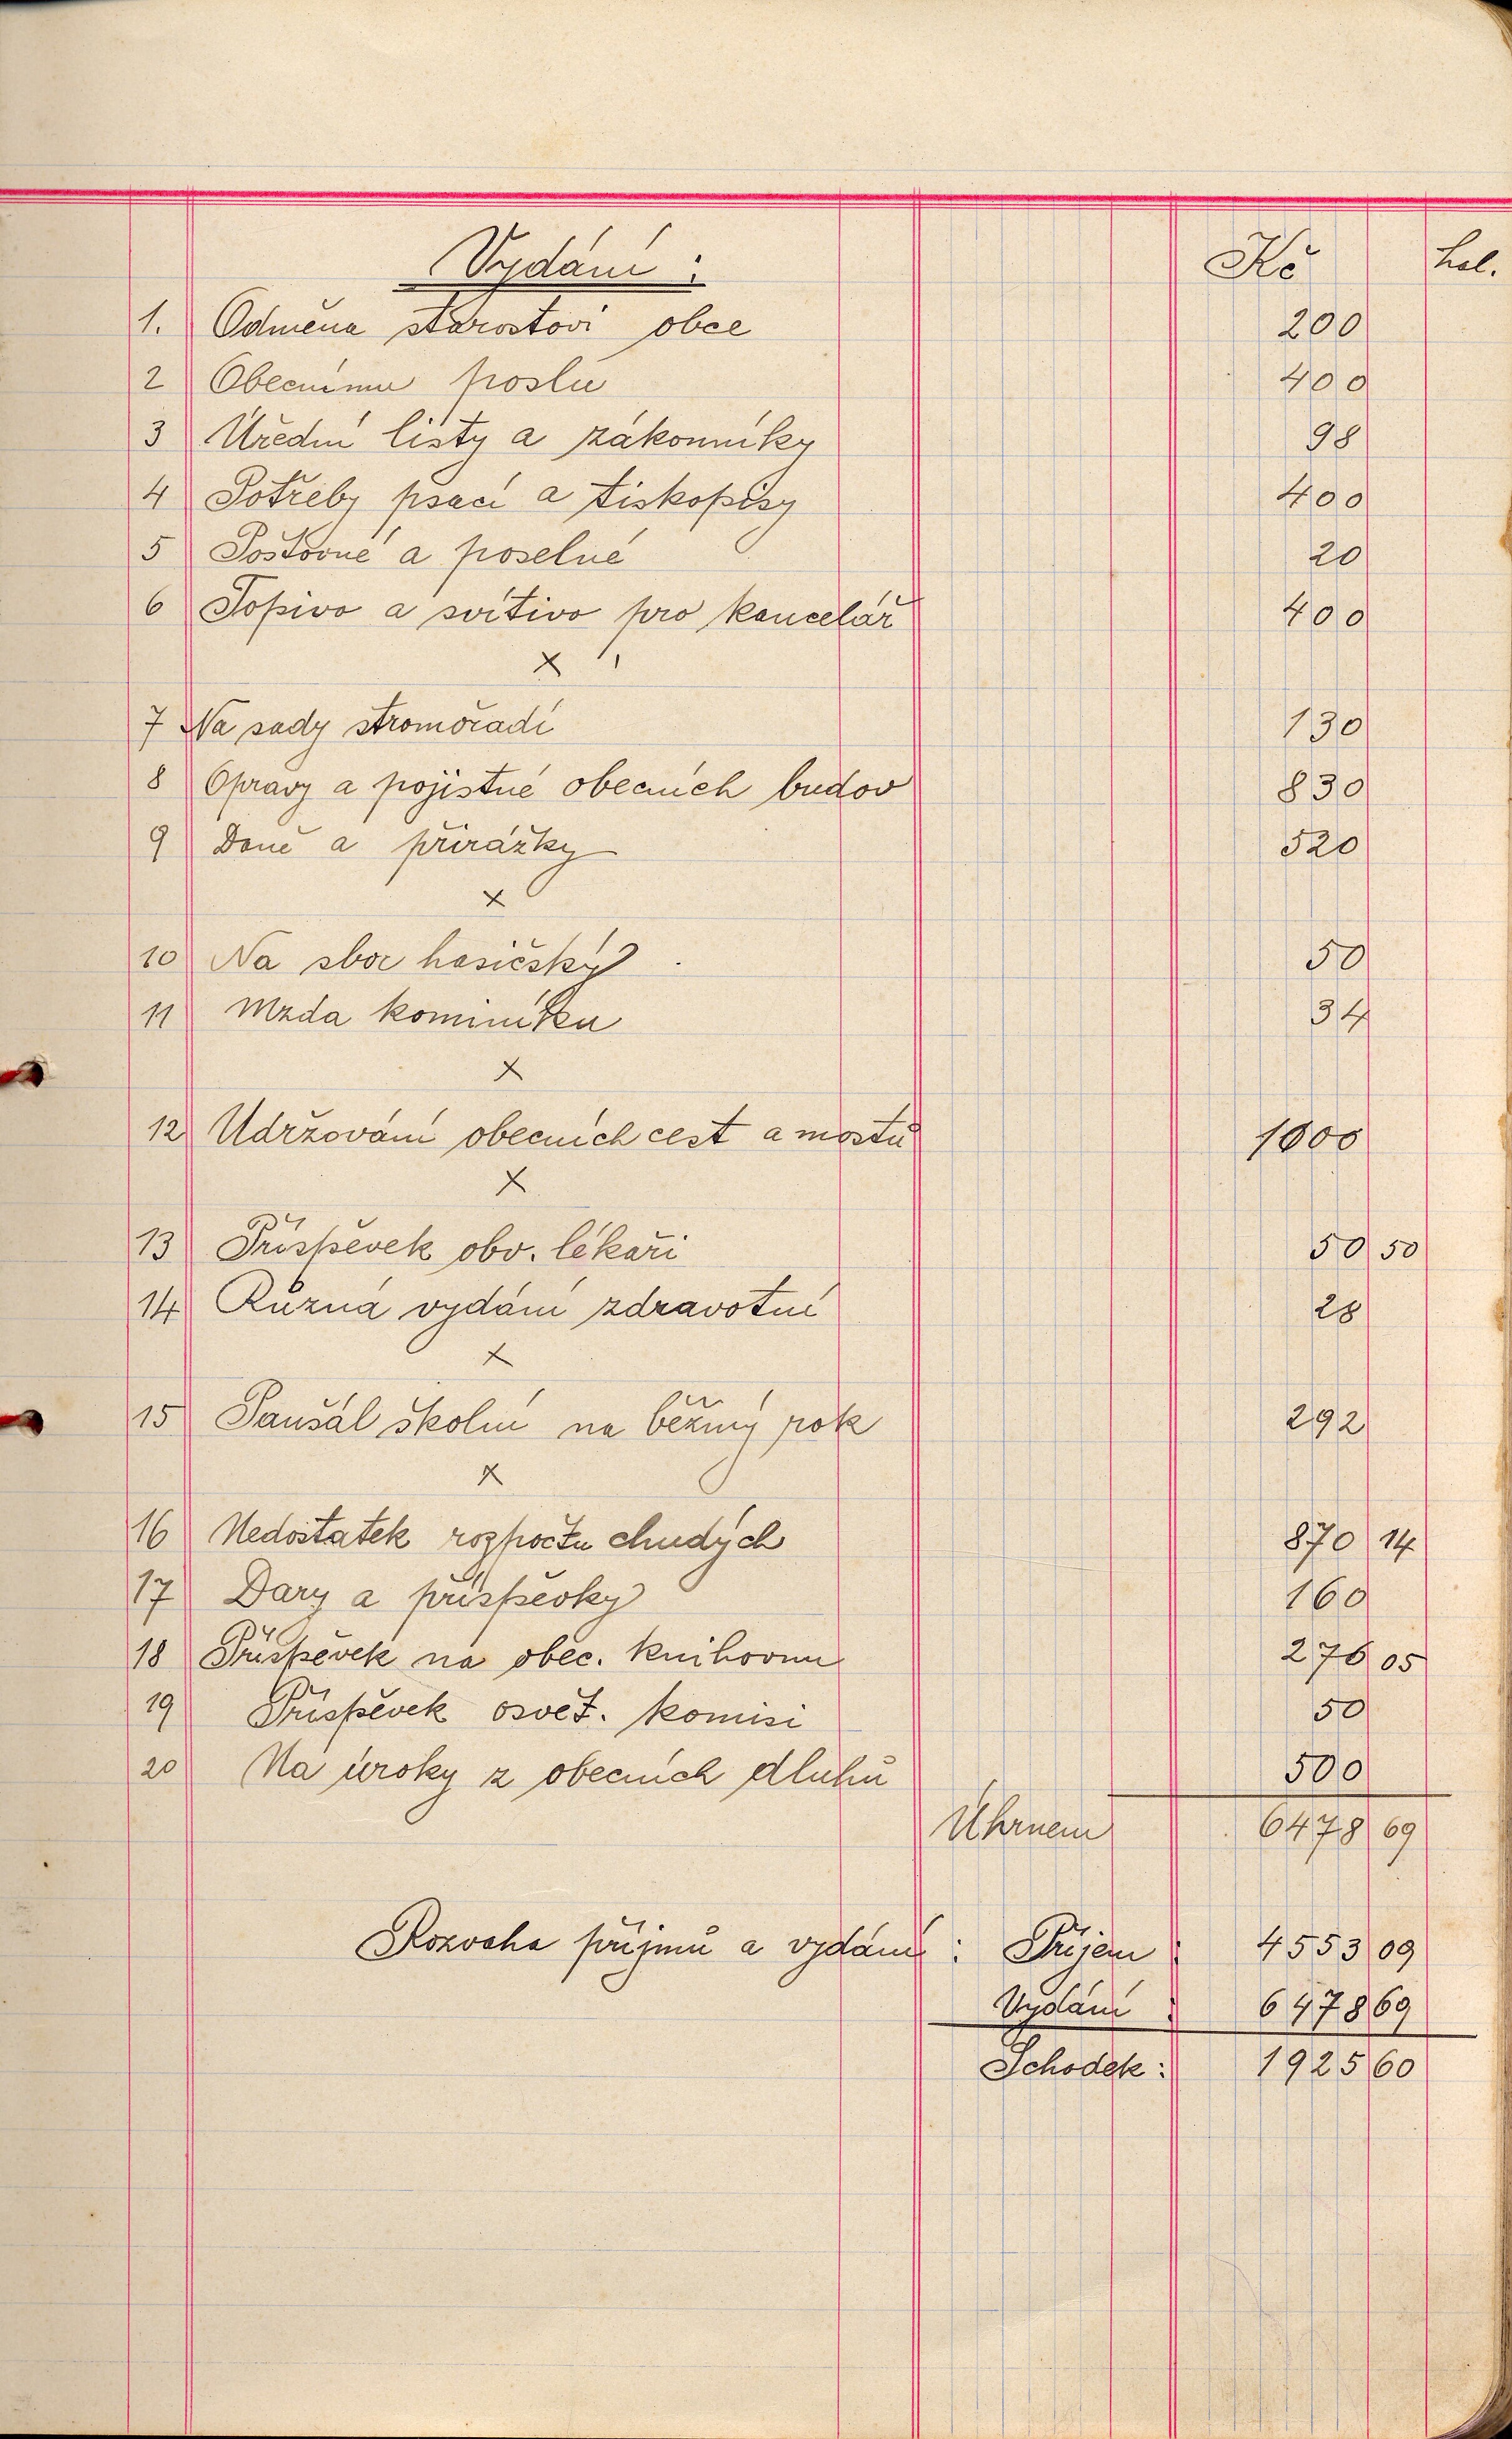 Vydání : Kč hal.
1. Odměna starostovi obce 200
2 Obecnímu poslu 400
3 Úřední listy a zákonníky 98
4 Potřeby psací a tiskopisy 400
5 Poštovné a poselné 20
6 Topivo a svítivo pro kancelář 400
x
7 Na sady stromořadí 130
8 Opravy a pojistné obecních budov 830
9 Daně a přirážky 520
x
10 Na sbor hasičský 50
11 Mzda kominíku 34
x
12 Udržování obecních cest a mostů 1000
x
13 Příspěvek obv. lékaři 50 50
14 Různá vydání zdravotní 28
x
15 Paušál školní na běžný rok 292
x
16 Nedostatek rozpočtu chudých 870 14
17 Dary a příspěvky 160
18 Příspěvek na obec. knihovnu 276 05
19 Příspěvek osvět. komisi 50
20 Na úroky z obecních dluhů 500
Úhrnem 6478 69
Rozvaha příjmů a vydání : Příjem : 4553 09
Vydání : 6478 69
Schodek : 1925 60